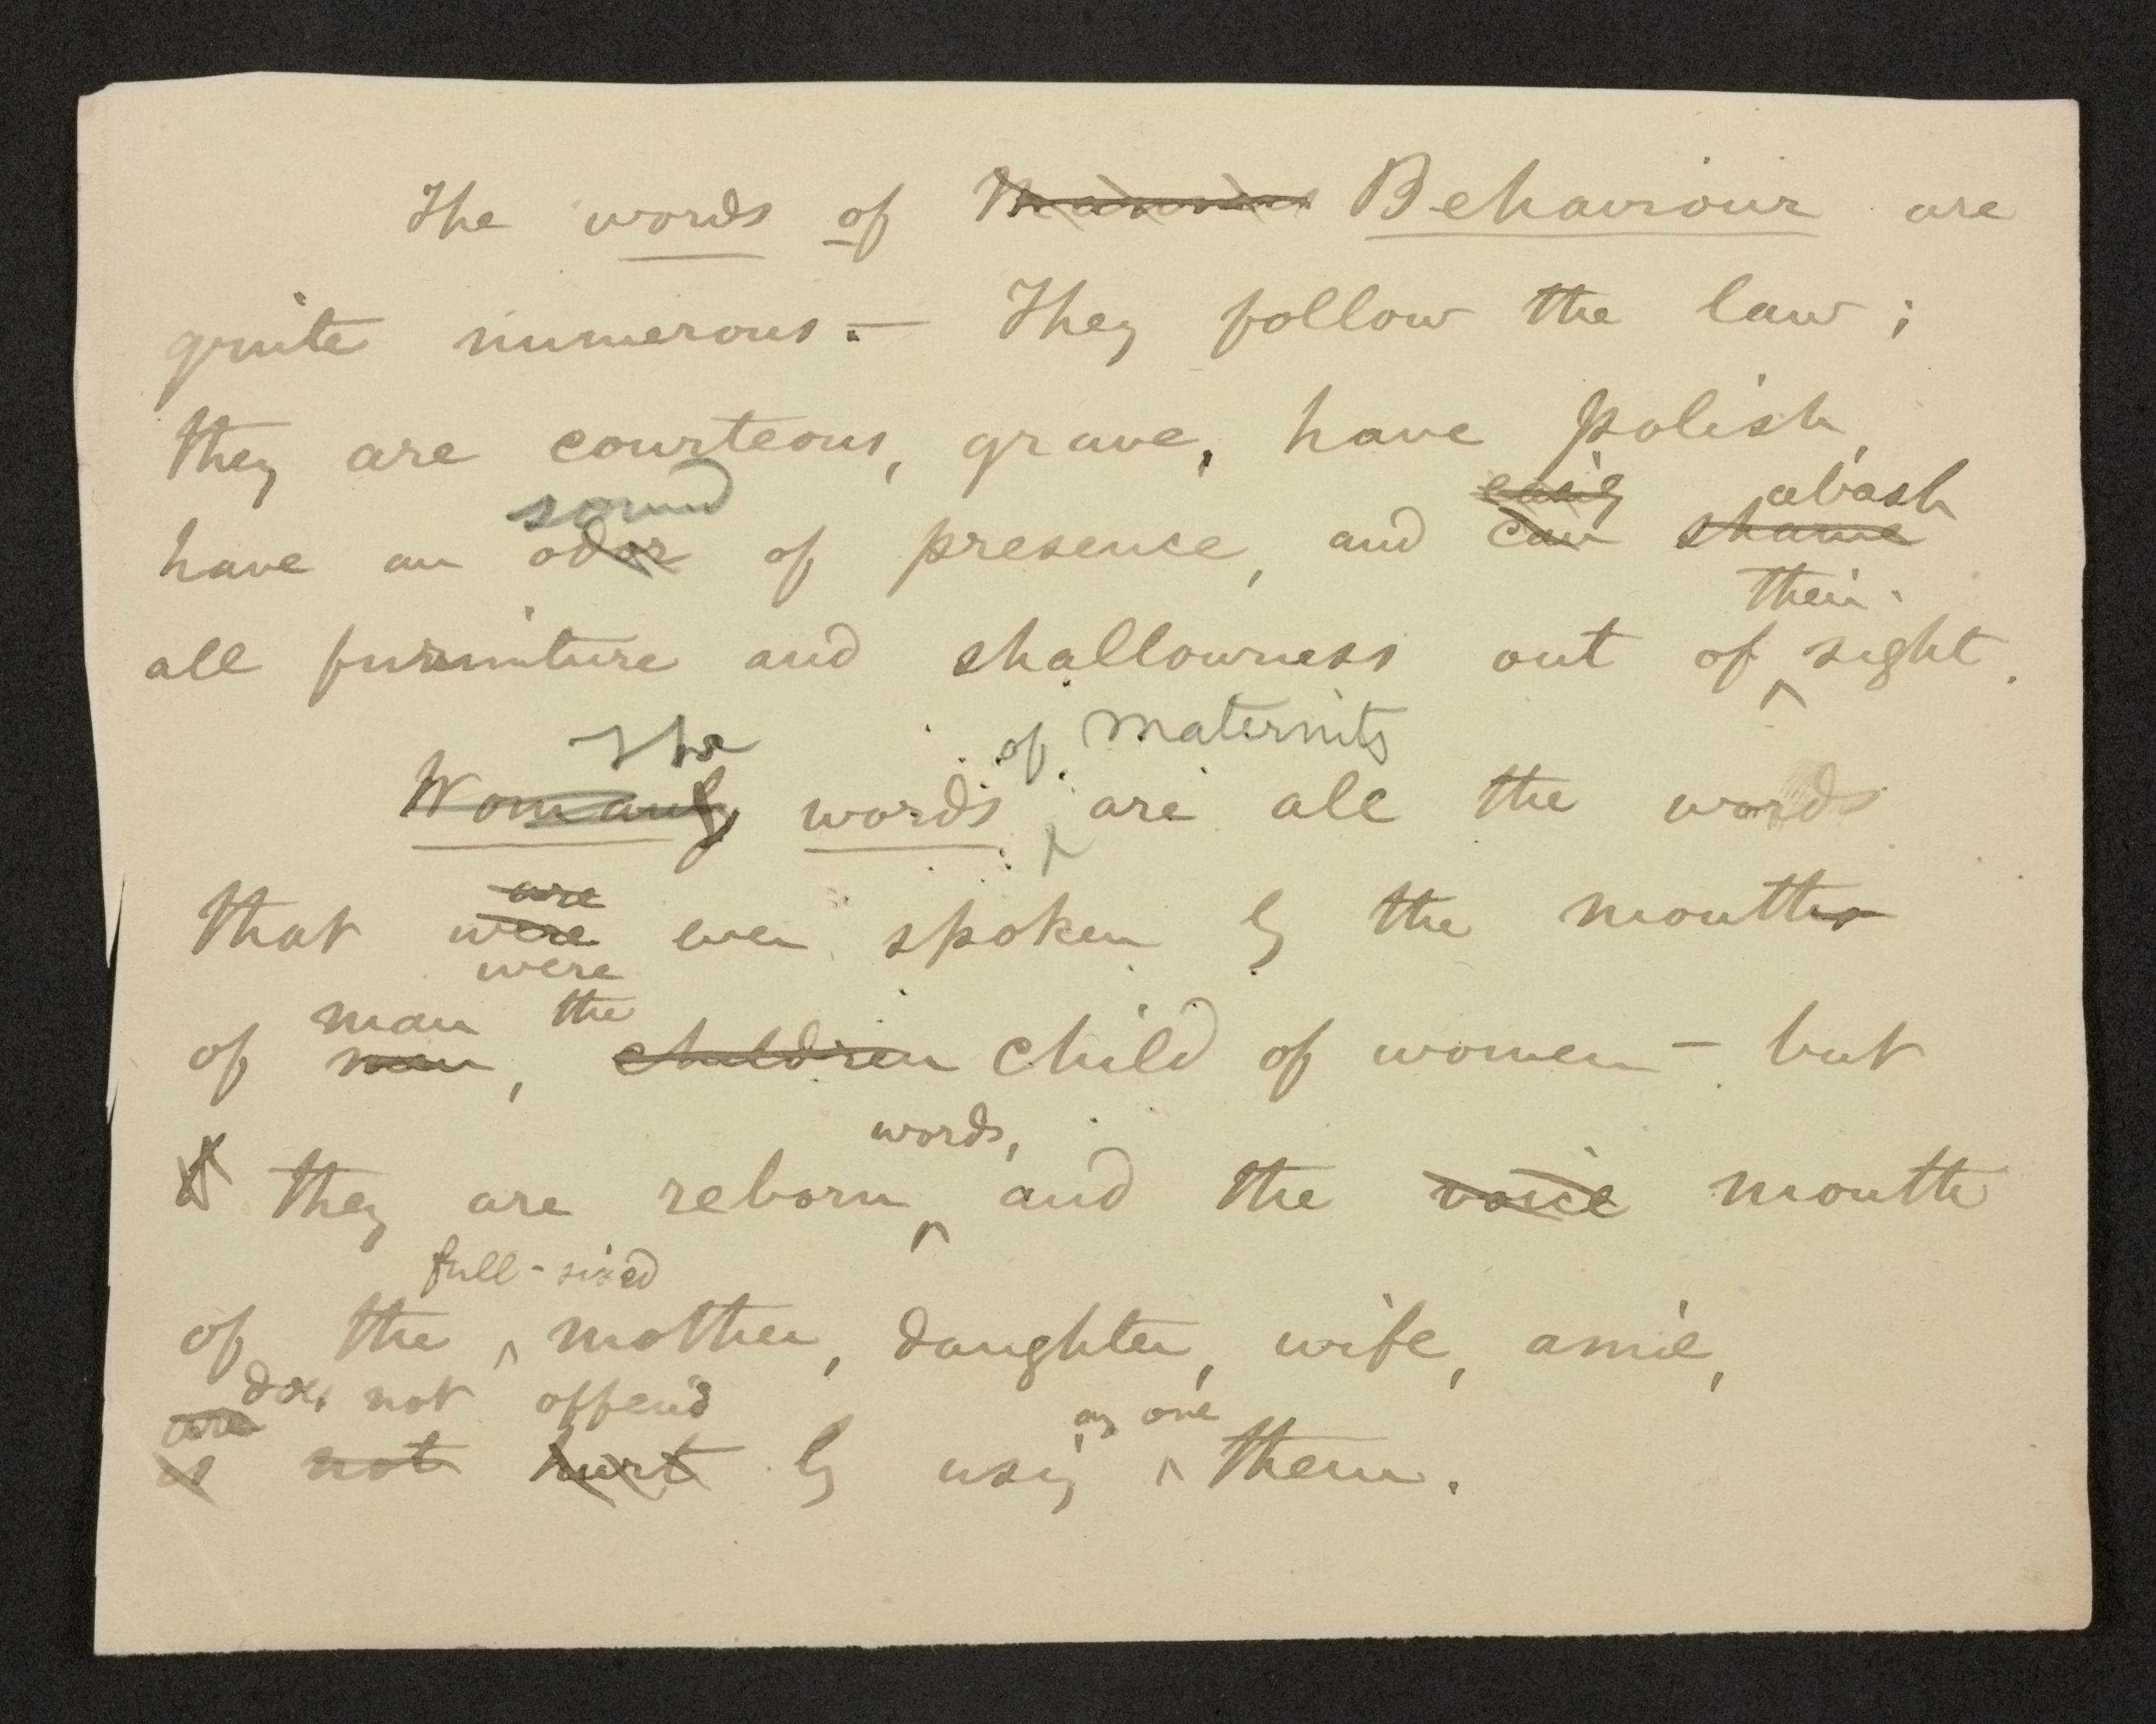 The words of Manners Behaviour are
quite numerous.— They follow the law;
they are courteous, grave, have polish,
sound easily abash
have an odor of presence, and can shame
their
all furniture and shallowness out of ^ sight.
The of Maternity
Womanly words ^ are all the words
are
that were ever spoken by the mouths
were
man the
of men, children child of women — but
words,
they are reborn ^ and the voice mouth
full-sized
of the ^ mother, daughter, wife, amie,
does not offend
are any one
is not hurt by using ^ them.